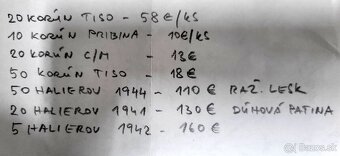 20 KORÚN TISO - 58 €/KS
10 KORÚN PRIBINA - 10€/KS
20 KORÚN C/M - 13€
50 KORÚN TISO - 18€
50 HALIEROV 1944 - 110 € RAŽ. LESK
20 HALIEROV 1941 - 130 € DÚHOVÁ PATINA
5 HALIEROV 1942 - 160 €
Bazos.sk